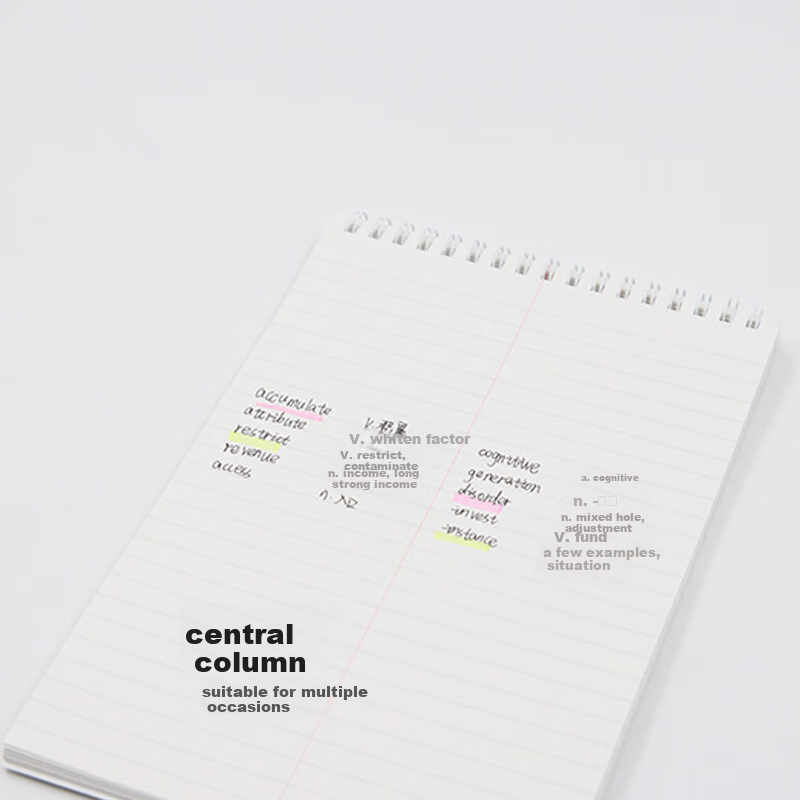 accumulate
attribute
restrict
revenue
access
V. 积累
V. whiten factor
V. restrict,
contaminate
n. income, long
strong income
n. 入口
cognitive
generation
disorder
-invest
-instance
a. cognitive
n. -
n. mixed hole,
adjustment
V. fund
a few examples,
situation
central
column
suitable for multiple
occasions